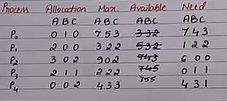 Process Allocation Max Available Need
A B C A B C A B C A B C
P₀ 0 1 0 7 5 3 3 3 2 7 4 3
P₁ 2 0 0 3 2 2 5 3 2 1 2 2
P₂ 3 0 2 9 0 2 7 4 3 6 0 0
P₃ 2 1 1 2 2 2 7 4 5 0 1 1
P₄ 0 0 2 4 3 3 7 5 5 4 3 1